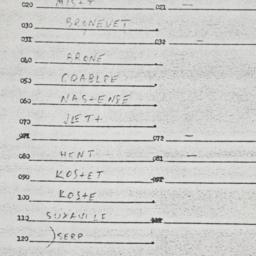 020 021 —
030 BRONEVET
031 032 —
040 ARONE
050 COABLEE
060 NASTENSE
070 JLET+
071 072 —
080 HENT 081 —
090 KOSTET
100 KOSTE
110 SUXAVILI
120 )SERP